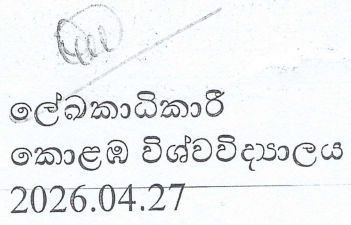 ලේඛකාධිකාරී
කොළඹ විශ්වවිද්‍යාලය
2026.04.27